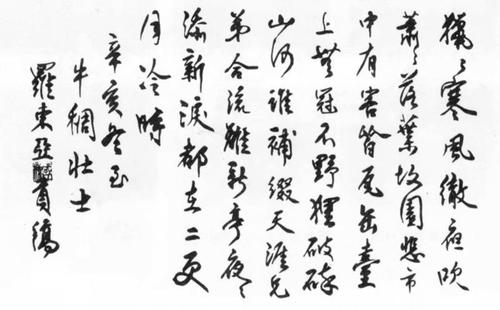 獵〻寒風徹夜吹
蕭〻落葉故園悲市
中有害皆瓦缶臺
上無冠不野狸破碎
山河誰補綴天涯兄
弟合流離新亭夜〻
添新淚都在二更
月冷時
辛亥冬至
牛稠壯士
羅東亞貢稿